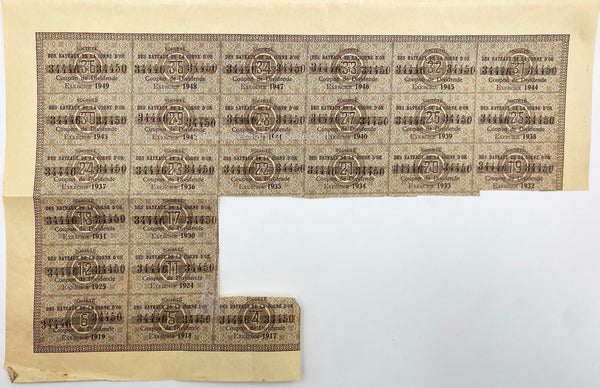 SOCIÉTÉ SOCIÉTÉ SOCIÉTÉ SOCIÉTÉ SOCIÉTÉ SOCIÉTÉ
DES BATEAUX DE LA CORNE D'OR DES BATEAUX DE LA CORNE D'OR DES BATEAUX DE LA CORNE D'OR DES BATEAUX DE LA CORNE D'OR DES BATEAUX DE LA CORNE D'OR DES BATEAUX DE LA CORNE D'OR
34446 36 34450 34446 35 34450 34446 34 34450 34446 33 34450 34446 32 34450 34446 31 34450
Coupon de Dividende Coupon de Dividende Coupon de Dividende Coupon de Dividende Coupon de Dividende Coupon de Dividende
EXERCICE 1949 EXERCICE 1948 EXERCICE 1947 EXERCICE 1946 EXERCICE 1945 EXERCICE 1944
SOCIÉTÉ SOCIÉTÉ SOCIÉTÉ SOCIÉTÉ SOCIÉTÉ SOCIÉTÉ
DES BATEAUX DE LA CORNE D'OR DES BATEAUX DE LA CORNE D'OR DES BATEAUX DE LA CORNE D'OR DES BATEAUX DE LA CORNE D'OR DES BATEAUX DE LA CORNE D'OR DES BATEAUX DE LA CORNE D'OR
34446 30 34450 34446 29 34450 34446 28 34450 34446 27 34450 34446 26 34450 34446 25 34450
Coupon de Dividende Coupon de Dividende Coupon de Dividende Coupon de Dividende Coupon de Dividende Coupon de Dividende
EXERCICE 1943 EXERCICE 1942 EXERCICE 1941 EXERCICE 1940 EXERCICE 1939 EXERCICE 1938
SOCIÉTÉ SOCIÉTÉ SOCIÉTÉ SOCIÉTÉ SOCIÉTÉ SOCIÉTÉ
DES BATEAUX DE LA CORNE D'OR DES BATEAUX DE LA CORNE D'OR DES BATEAUX DE LA CORNE D'OR DES BATEAUX DE LA CORNE D'OR DES BATEAUX DE LA CORNE D'OR DES BATEAUX DE LA CORNE D'OR
34446 24 34450 34446 23 34450 34446 22 34450 34446 21 34450 34446 20 34450 34446 19 34450
Coupon de Dividende Coupon de Dividende Coupon de Dividende Coupon de Dividende Coupon de Dividende Coupon de Dividende
EXERCICE 1937 EXERCICE 1936 EXERCICE 1935 EXERCICE 1934 EXERCICE 1933 EXERCICE 1932
SOCIÉTÉ SOCIÉTÉ
DES BATEAUX DE LA CORNE D'OR DES BATEAUX DE LA CORNE D'OR
34446 18 34450 34446 17 34450
Coupon de Dividende Coupon de Dividende
EXERCICE 1931 EXERCICE 1930
SOCIÉTÉ SOCIÉTÉ
DES BATEAUX DE LA CORNE D'OR DES BATEAUX DE LA CORNE D'OR
34446 12 34450 34446 11 34450
Coupon de Dividende Coupon de Dividende
EXERCICE 1925 EXERCICE 1924
SOCIÉTÉ SOCIÉTÉ SOCIÉTÉ
DES BATEAUX DE LA CORNE D'OR DES BATEAUX DE LA CORNE D'OR DES BATEAUX DE LA CORNE D'OR
34446 6 34450 34446 5 34450 34446 4 34450
Coupon de Dividende Coupon de Dividende Coupon de Dividende
EXERCICE 1919 EXERCICE 1918 EXERCICE 1917